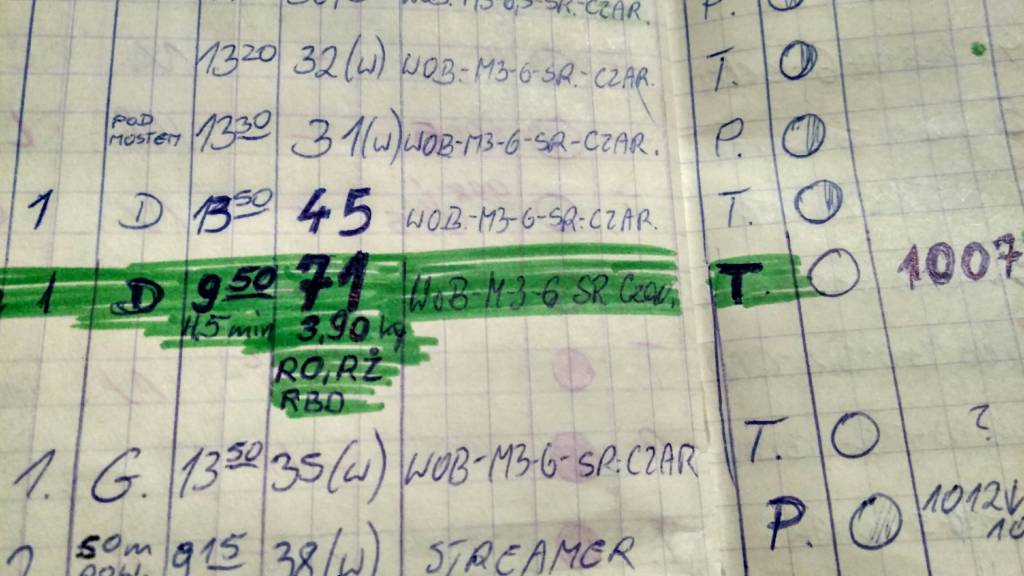 WOB-M3-6,5-SR.-CZAR. P.
13 20 32(W) WOB-M3-6-SR.-CZAR. T.
POD
MOSTEM 13 30 31(W) WOB-M3-6-SR-CZAR. P.
1 D 13 50 45 WOB-M3-6-SR-CZAR. T.
1 D 9 50 71 WOB-M-3-6 SR CZAR. T. 1007
45 min 3,90 kg
RO, RŻ
RBD
1. G. 13 50 35(W) WOB-M3-6-SR.CZAR T. ?
2. 50m 9 15 38(W) STREAMER P. 1012↓